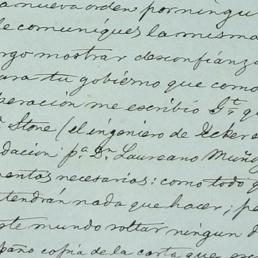 nueva orden por ningu
le comuniques la misma
rgo mostrar desconfianz
para tu gobierno que como
eración me escribio D. qu
Stone (el ingeniero de Ecker
dacion pª Dn Laureano Muño
entos necesarios: como todo q
tendrán nada que hacer; pe
ste mundo voltar ningun d
paño copia de la carta que